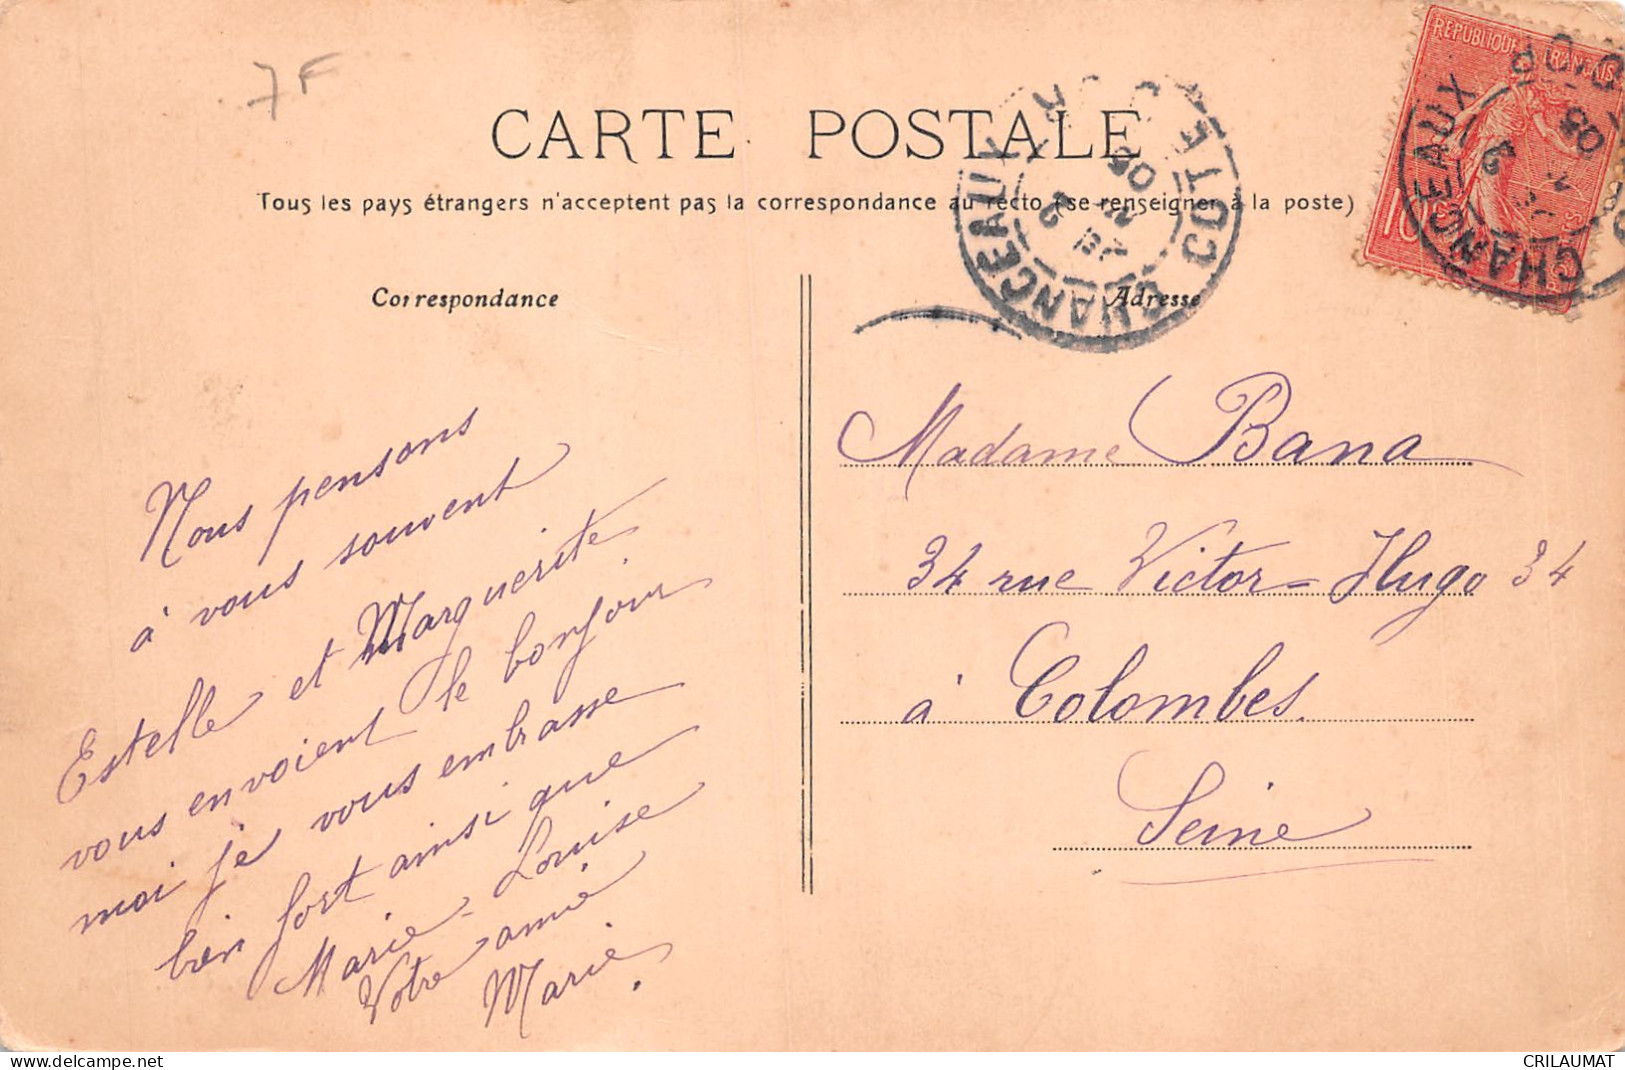 7F
CARTE POSTALE
Tous les pays étrangers n'acceptent pas la correspondance au recto (se renseigner à la poste)
Correspondance
Adresse
CHANCEAUX COTE D'OR
CHANCEAUX
REPUBLIQUE FRANÇAISE
10
Nous pensons
à vous souvent
Estelle et Marguerite
vous envoient le bonjour
moi je vous embrasse
bien fort ainsi que
Marie-Louise
Votre amie
Marie.
Madame Bana
34 rue Victor-Hugo 34
à Colombes.
Seine
www.delcampe.net
CRILAUMAT